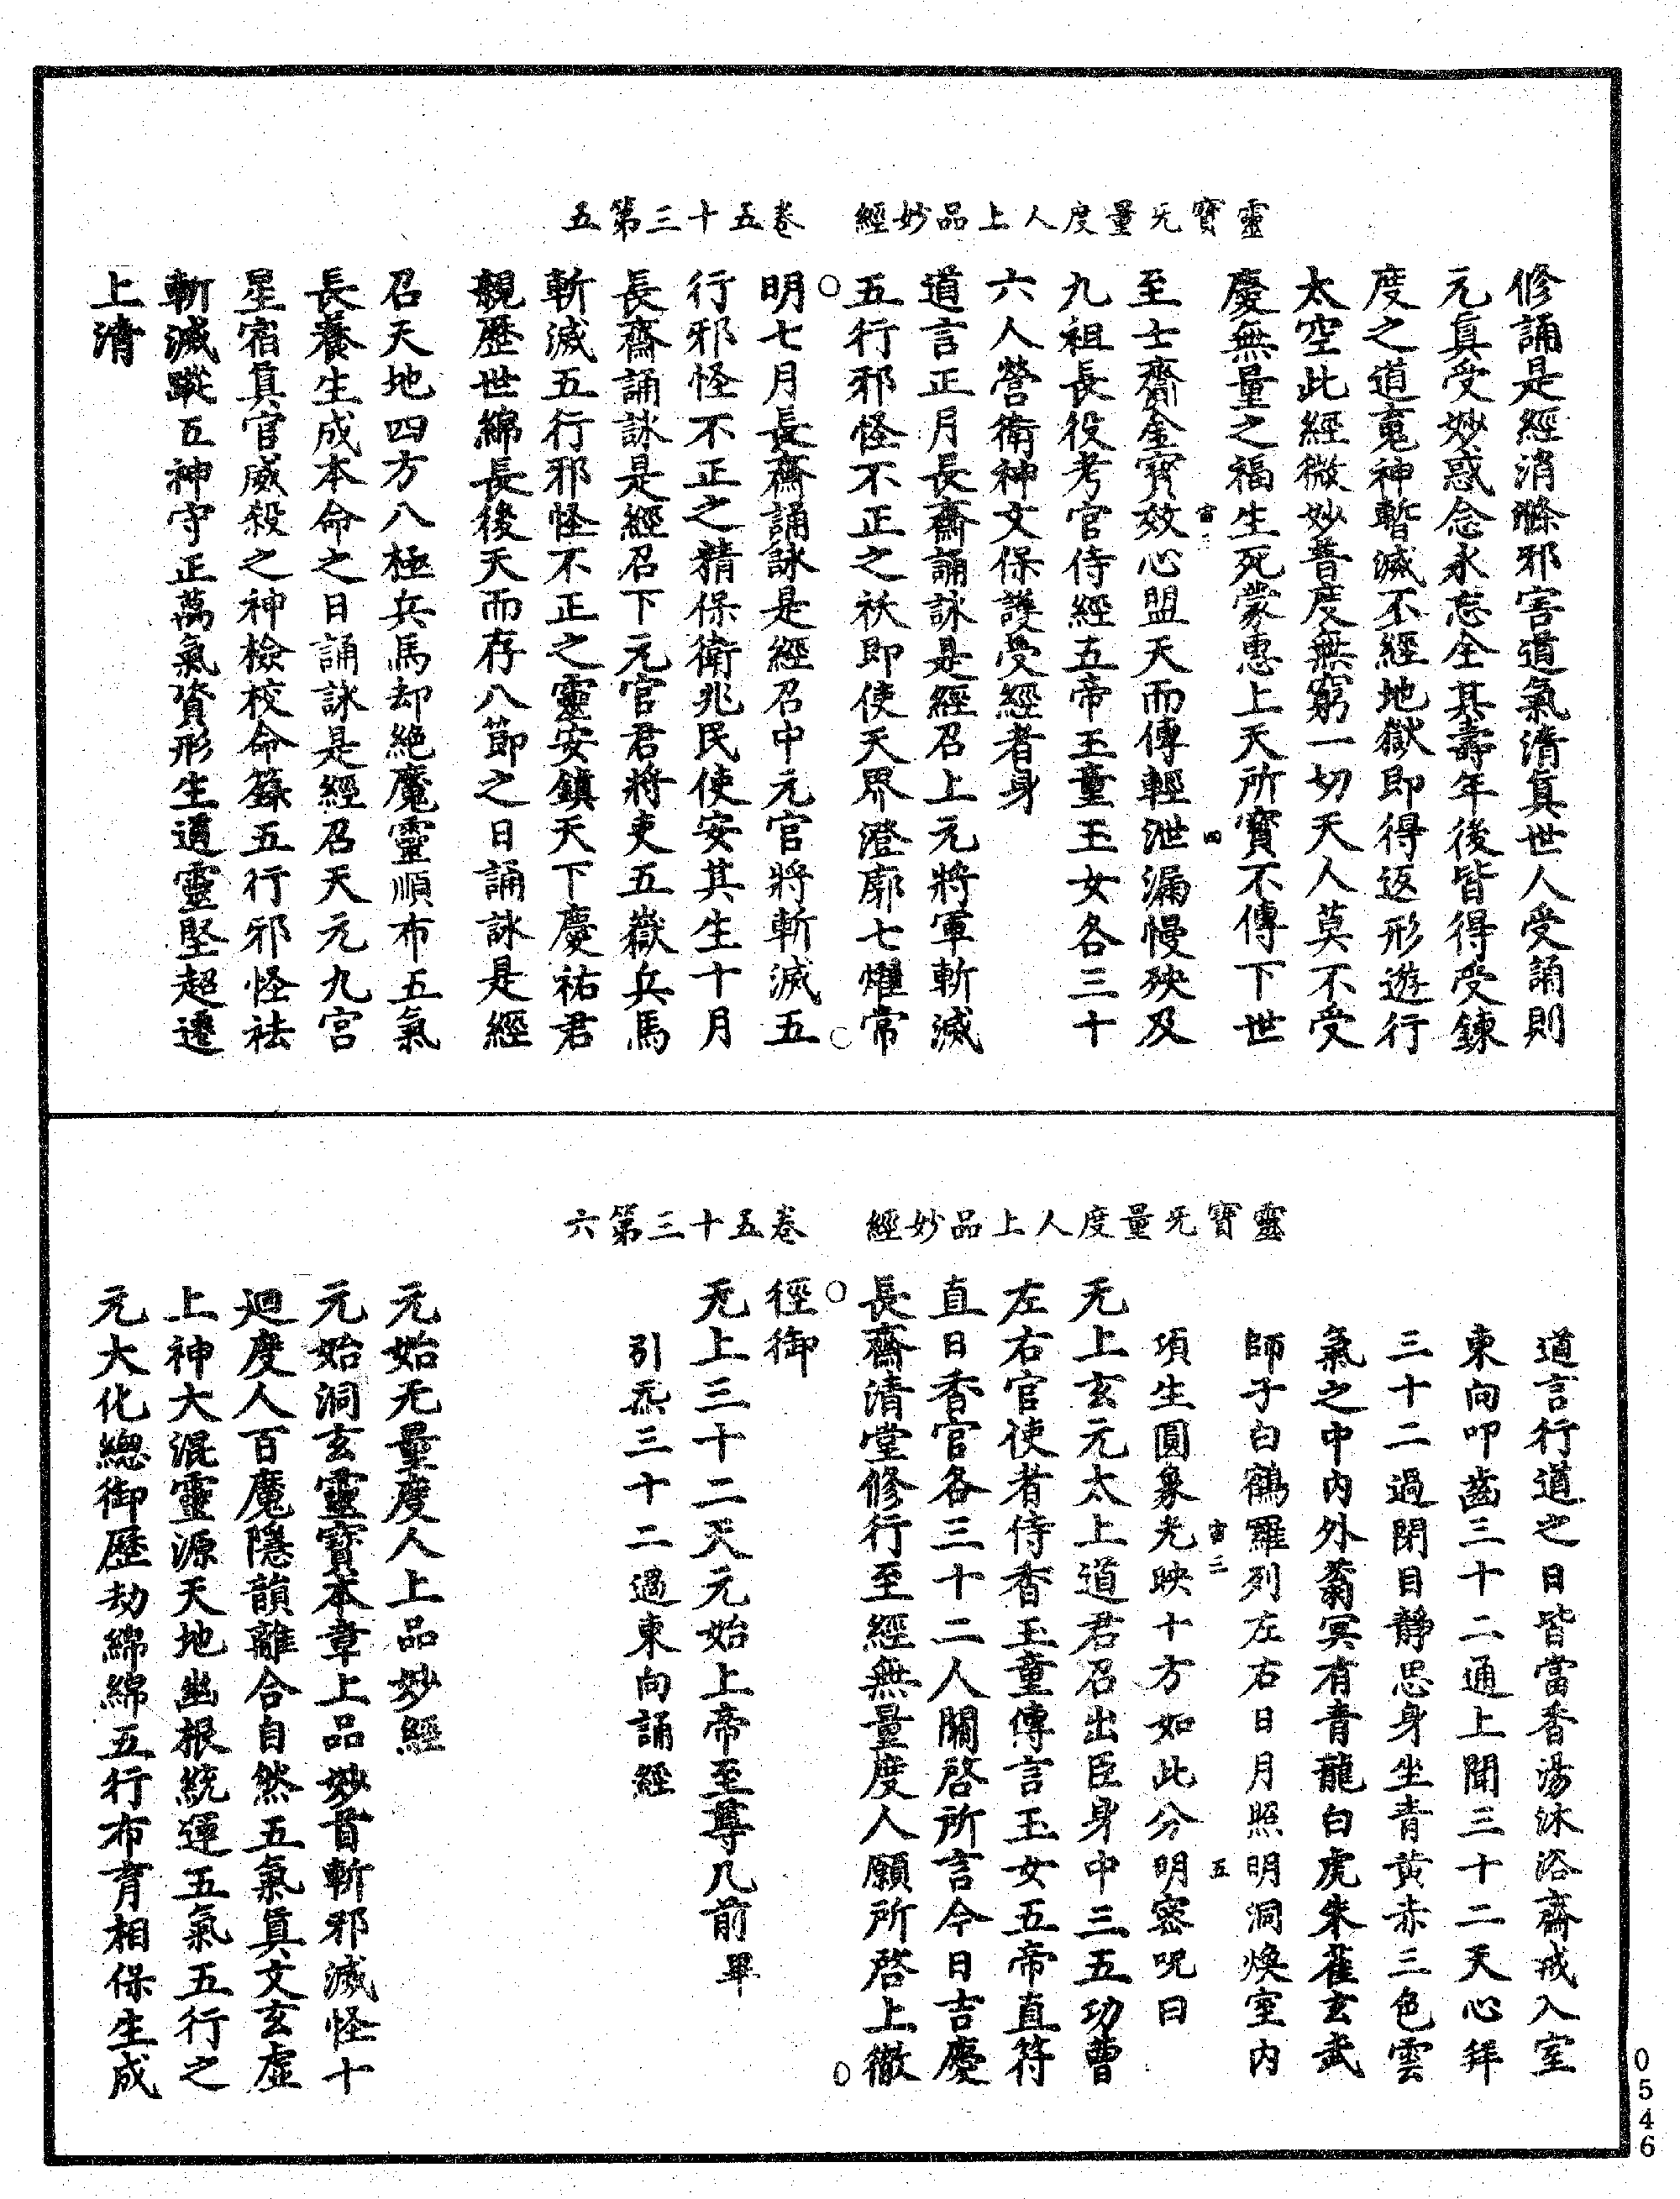 靈寶无量度人上品妙經　卷五十三第五
修誦是經消滌邪害道氣清真世人受誦則
元真受妙惑念永忘全其壽年後皆得受鍊
度之道冤神暫滅不經地獄即得返形遊行
太空此經微妙普度無窮一切天人莫不受
慶無量之福生死蒙惠上天所寶不傳下世
宙二　四
至士齎金寶效心盟天而傳輕泄漏慢殃及
九祖長役考官侍經五帝玉童玉女各三十
六人營衛神文保護受經者身
道言正月長齋誦詠是經召上元將軍斬滅
五行邪怪不正之祅即使天界澄廓七燿常
明七月長齋誦詠是經召中元官將斬滅五
行邪怪不正之精保衛兆民使安其生十月
長齋誦詠是經召下元官君將吏五嶽兵馬
斬滅五行邪怪不正之靈安鎮天下慶祐君
親歷世綿長後天而存八節之日誦詠是經
召天地四方八極兵馬却絕魔靈順布五氣
長養生成本命之日誦詠是經召天元九宮
星宿真官威殺之神檢校命籙五行邪怪祛
斬滅蹤五神守正萬氣資形生道靈堅超遷
上清
靈寶无量度人上品妙經　卷五十三第六
道言行道之日皆當香湯沐浴齋戒入室
東向叩齒三十二通上聞三十二天心拜
三十二過閉目靜思身坐青黃赤三色雲
氣之中內外蓊冥有青龍白虎朱雀玄武
師子白鶴羅列左右日月照明洞煥室內
宙二　五
項生圓象光映十方如此分明密呪曰
无上玄元太上道君召出臣身中三五功曹
左右官使者侍香玉童傳言玉女五帝直符
直日香官各三十二人關啓所言今日吉慶
長齋清堂修行至經無量度人願所啓上徹
徑御
无上三十二天元始上帝至尊几前畢
引炁三十二過東向誦經
元始无量度人上品妙經
元始洞玄靈寶本章上品妙首斬邪滅怪十
迴度人百魔隱韻離合自然五氣真文玄虛
上神大混靈源天地幽根統運五氣五行之
元大化總御歷劫綿綿五行布育相保生成
0546